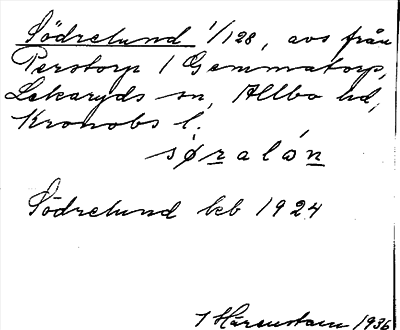 Södrelund 1/128, avs från
Perstorp 1 Gemmatorp,
Lekaryds sn, Allbo hd,
Kronobs l.
sø̱ṟalóṉ
Södrelund kb 1924
J Hårenstam 1936